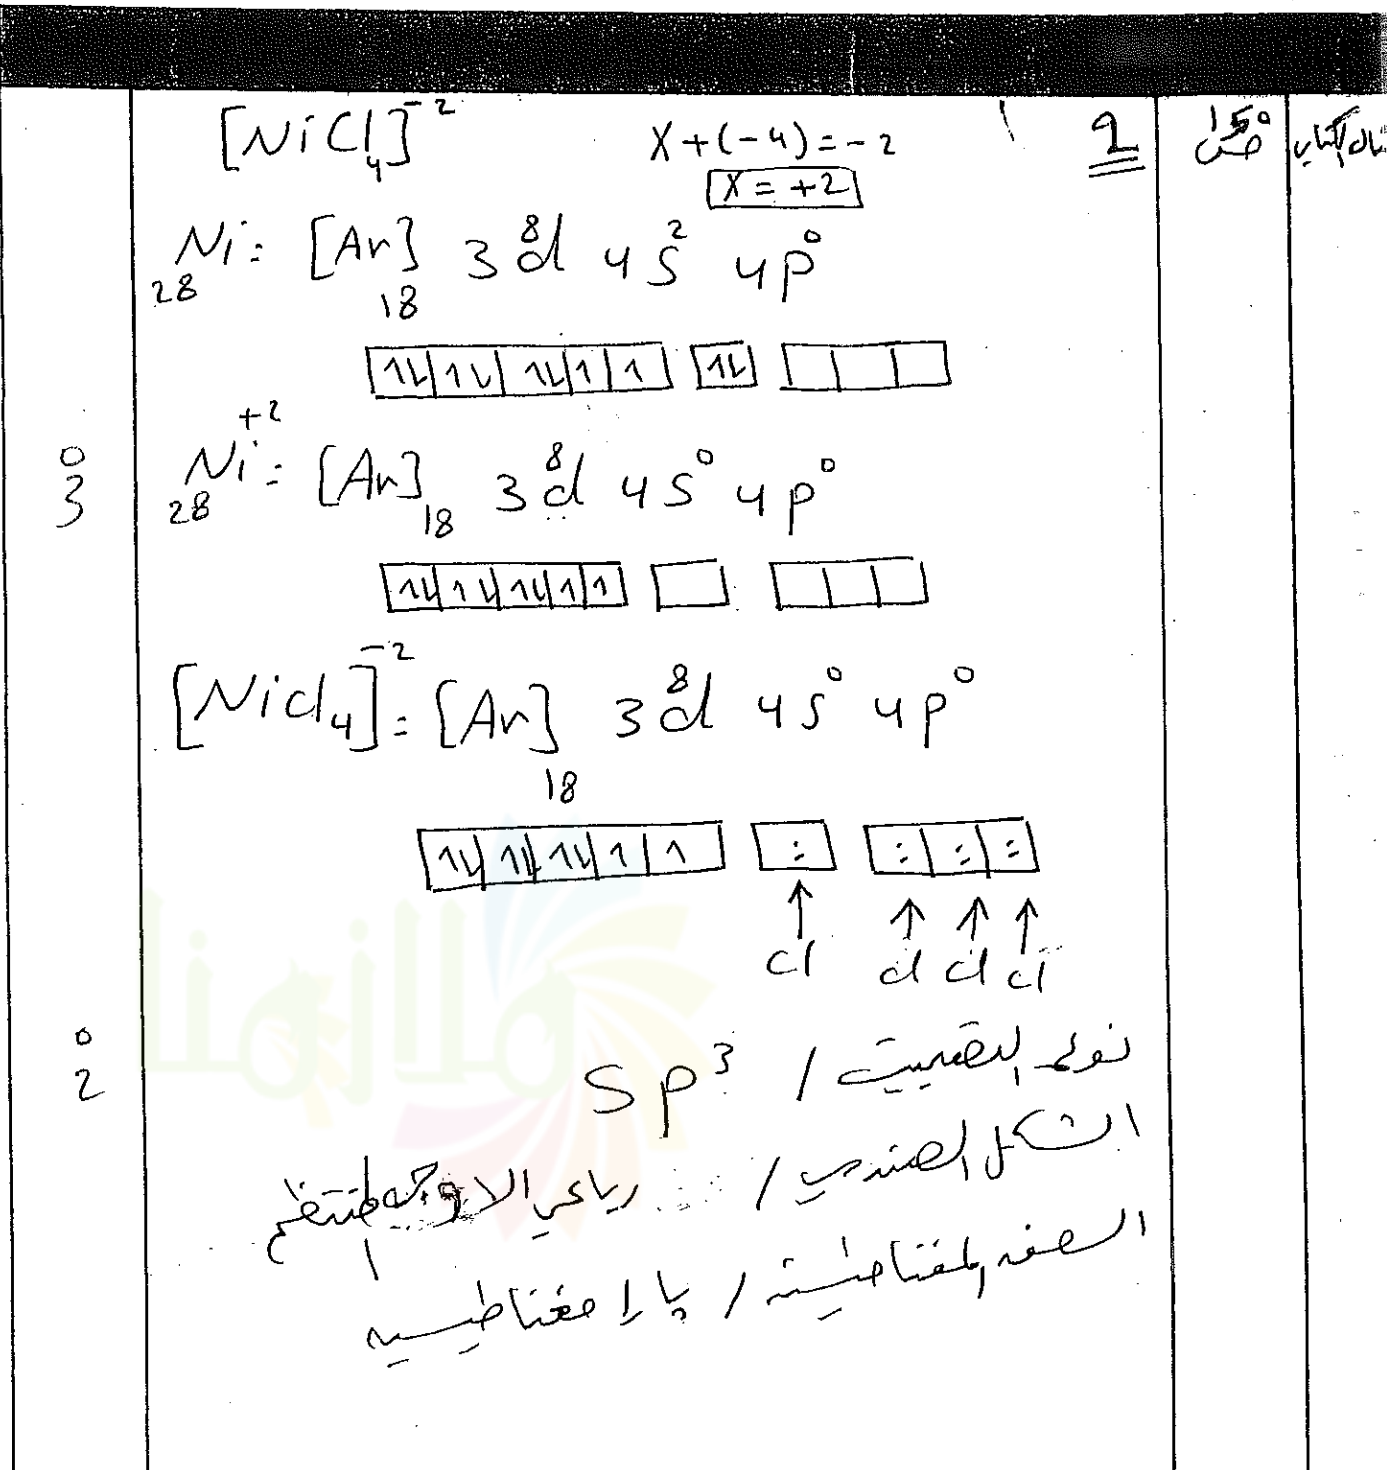 [NiCl₄]⁻² X+(-4)=-2 9 ص 150
X = +2
₂₈Ni: [Ar]₁₈ 3d⁸ 4s² 4p⁰
1L 1L 1L 1 1 1L
₂₈Ni⁺²: [Ar]₁₈ 3d⁸ 4s⁰ 4p⁰
1L 1L 1L 1 1
03
[Nicl₄]⁻²: [Ar]₁₈ 3d⁸ 4s⁰ 4p⁰
1L 1L 1L 1 1 : : : :
↑ ↑ ↑ ↑
cl cl cl cl
ملازمنا
02
نوع التهجين / SP³
الشكل الهندسي / رباعي الاوجه المنتظم
الصفه المغناطيسية / بارا مغناطيسيه